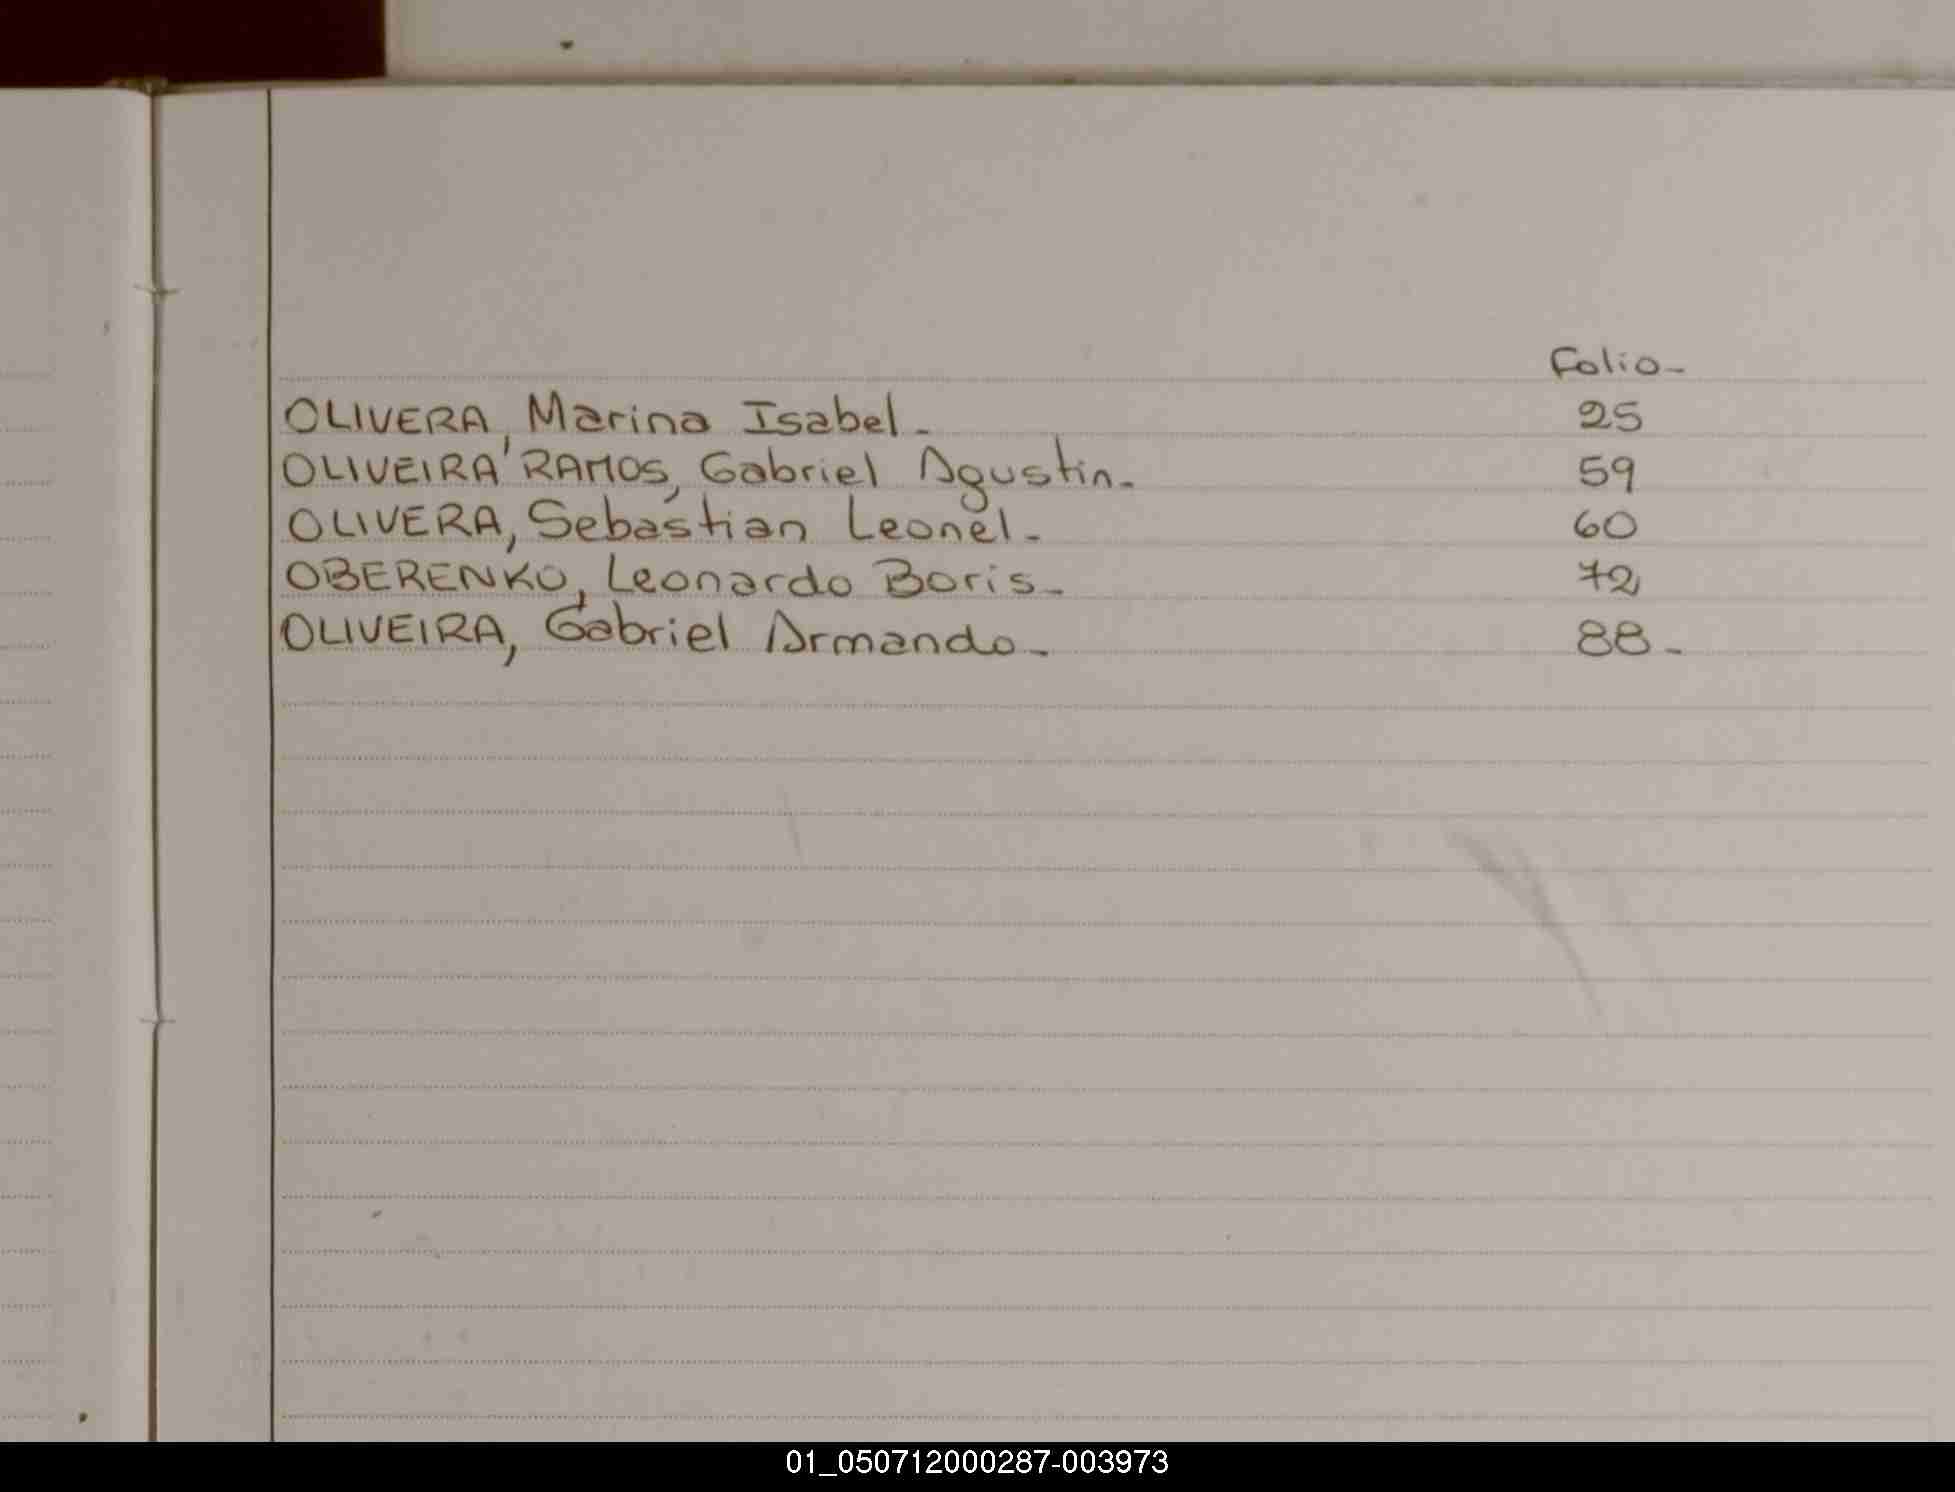 Folio-
OLIVERA, Marina Isabel- 25
OLIVEIRA RAMOS, Gabriel Agustin- 59
OLIVERA, Sebastian Leonel- 60
OBERENKO, Leonardo Boris- 72
OLIVEIRA, Gabriel Armando- 88-
01_050712000287-003973